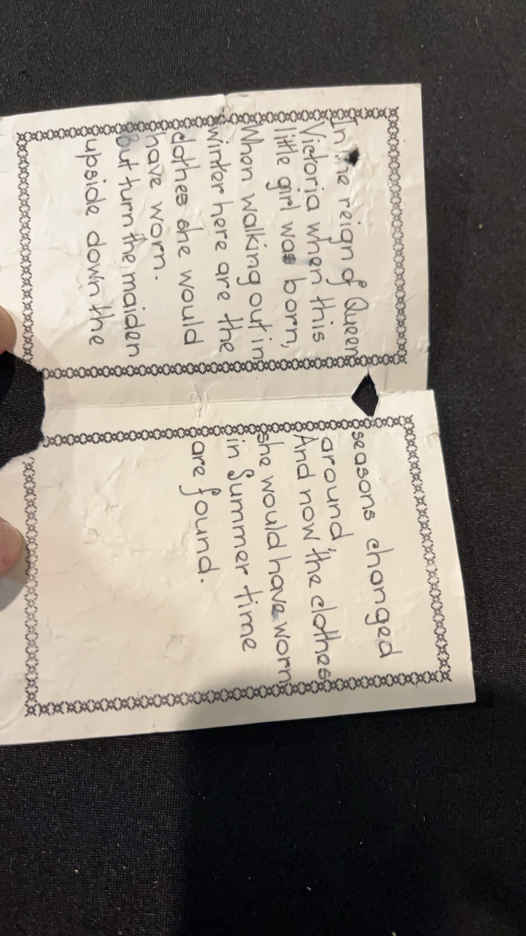 In the reign of Queen
Victoria when this
little girl was born,
When walking out in
winter here are the
clothes she would
have worn.
But turn the maiden
upside down the
seasons changed
around,
And now the clothes
she would have worn
in Summer time
are found.